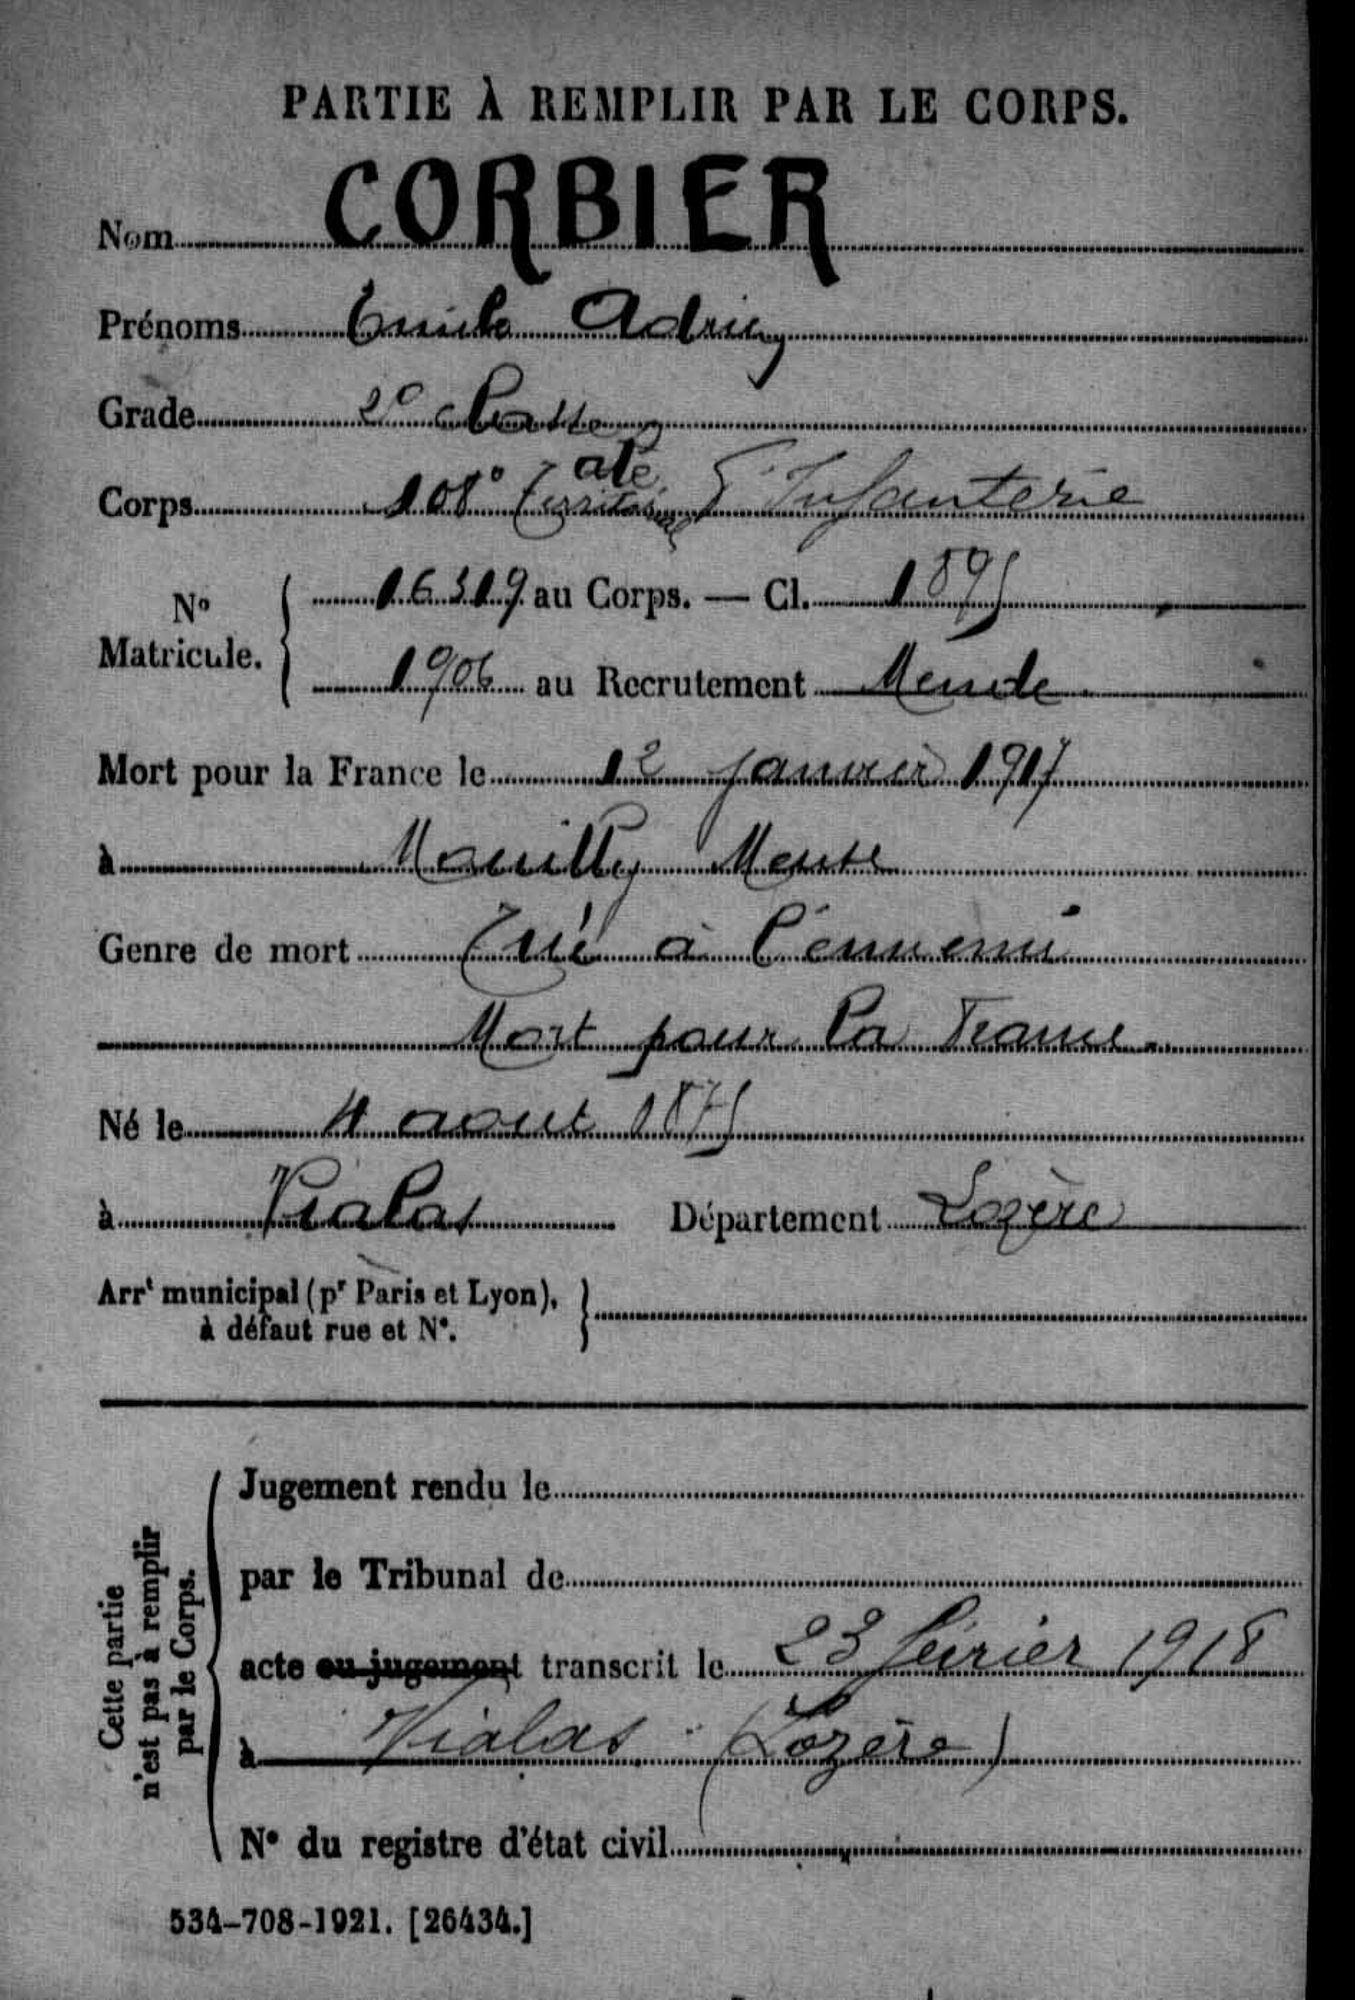 PARTIE À REMPLIR PAR LE CORPS.
Nom CORBIER
Prénoms Emile Adrien
Grade 2e classe
Corps 108e Territorial d'Infanterie
No Matricule. 16319 au Corps. — Cl. 1895
1906 au Recrutement Mende
Mort pour la France le 12 janvier 1917
à Mouilly Meuse
Genre de mort Tué à l'ennemi
Mort pour la France.
Né le 4 aout 1875
à Vialas Département Lozère
Arrt municipal (pr Paris et Lyon),
à défaut rue et No.
Cette partie
n'est pas à remplir
par le Corps.
Jugement rendu le
par le Tribunal de
acte ou jugement transcrit le 23 février 1918
à Vialas (Lozère)
No du registre d'état civil
534-708-1921. [26434.]